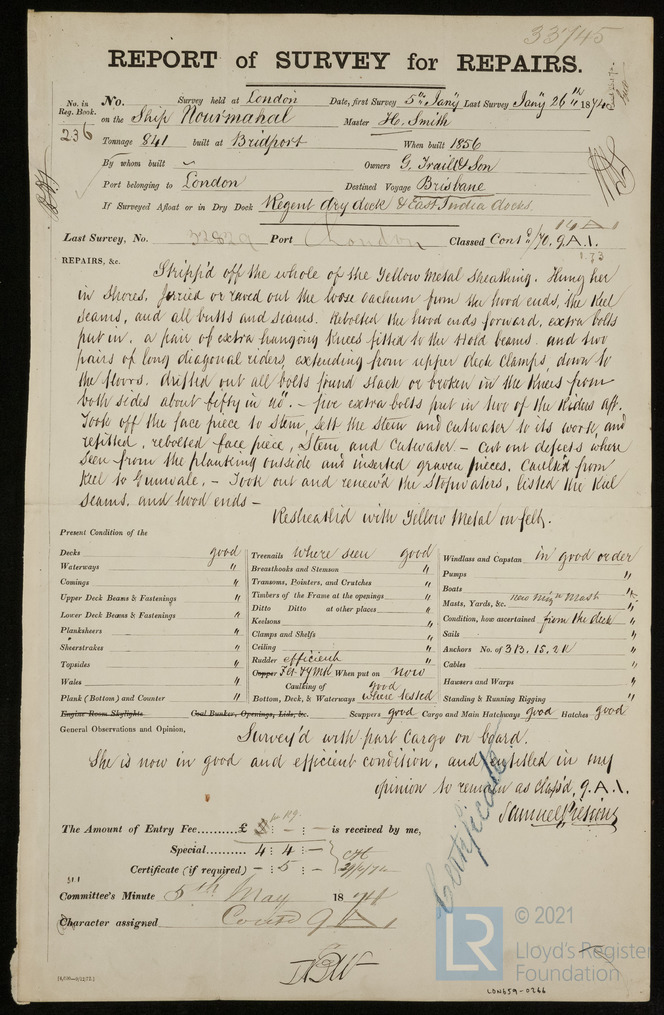 33745
REPORT of SURVEY for REPAIRS.
No. in Reg. Book. No. Survey held at London Date, first Survey 5th Jany Last Survey Jany 26th 1874
236 on the Ship Nourmahal Master H. Smith
Tonnage 841 built at Bridport When built 1856
By whom built Owners G. Traill & Son
Port belonging to London Destined Voyage Brisbane
If Surveyed Afloat or in Dry Dock Regent dry dock & East India docks
14 A 1
Last Survey, No. 32829 Port London Classed Contd /70, 9.A.1.
1.73
REPAIRS, &c.
Stripp'd off the whole of the Yellow Metal Sheathing. Hung her
in Shores. out the loose from the hood ends, the Keel
seams, and all butts and seams. Rebolted the hood ends forward, extra bolts
put in. a pair of extra hanging Knees fitted to the Hold beams. and two
pairs of long diagonal riders, extending from upper deck clamps, down to
the floors. drifted out all bolts found slack or broken in the Knees from
both sides about fifty in no. — five extra bolts put in two of the Riders aft.
Took off the face piece to Stem, sett the Stem and cutwater to its work, and
refitted, rebolted face piece, Stem and Cutwater. — Cut out defects where
seen from the planking outside and inserted graven pieces. Caulk'd from
Keel to Gunwale. — Took out and renew'd the Stopwaters, listed the Keel
seams, and hood ends —
Resheath'd with Yellow Metal on felt.
Present Condition of the
Decks good
Waterways "
Comings "
Upper Deck Beams & Fastenings "
Lower Deck Beams & Fastenings "
Planksheers "
Sheerstrakes "
Topsides "
Wales "
Plank (Bottom) and Counter "
Treenails where seen good
Breasthooks and Stemson "
Transoms, Pointers, and Crutches "
Timbers of the Frame at the openings "
Ditto Ditto at other places "
Keelsons "
Clamps and Shelfs "
Ceiling "
Rudder efficient "
Copper Felt YM When put on now
Caulking of good
Bottom, Deck, & Waterways where tested
Windlass and Capstan in good order
Pumps "
Boats "
Masts, Yards, &c. new Mizn Mast "
Condition, how ascertained from the deck
Sails "
Anchors No. of 3 B, 1 S, 2 K "
Cables "
Hawsers and Warps "
Standing & Running Rigging "
Engine Room Skylights Coal Bunker, Openings, Lids, &c. Scuppers good Cargo and Main Hatchways good Hatches good
General Observations and Opinion,
Survey'd with part Cargo on board.
She is now in good and efficient condition, and entitled in my
opinion to remain as class'd, 9.A.1.
Samuel Pretious
The Amount of Entry Fee.......... £ : — : — is received by me,
Special.......... 4 : 4 : —
Certificate (if required) – : 5 : —
Certificate
Committee's Minute 5th May 1874
Character assigned Contd 9 A 1
© 2021
LR
Lloyd's Register
Foundation
LDN659-0266